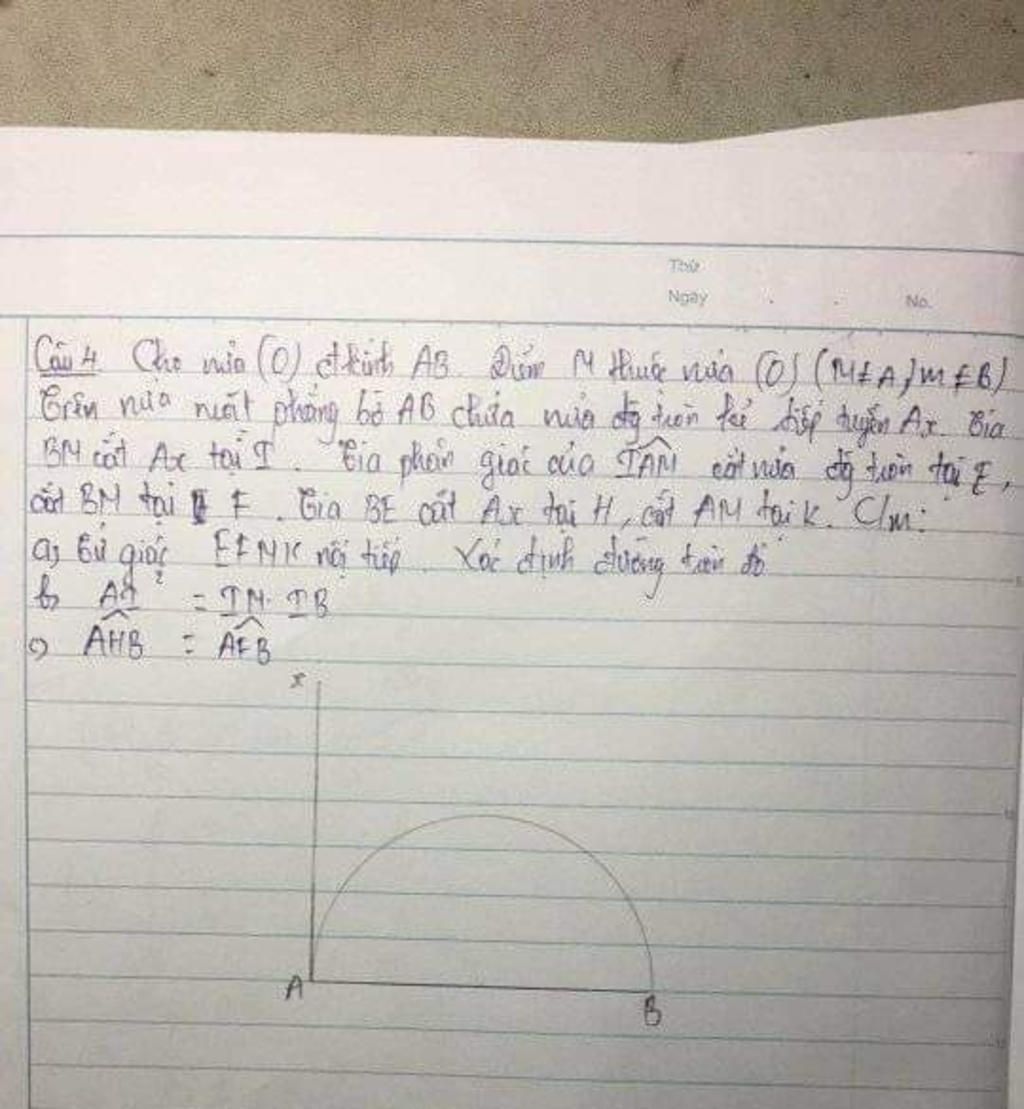 Thứ
Ngày No.
Câu 4 Cho nửa (O) đkính AB. Điểm M thuộc nửa (O) (M≠A, M≠B)
Trên nửa mặt phẳng bờ AB chứa nửa đg tròn kẻ tiếp tuyến Ax. Tia
BM cắt Ax tại I. Tia phân giác của IAM cắt nửa đg tròn tại E,
cắt BM tại F. Tia BE cắt Ax tại H, cắt AM tại K. C/m:
a) Tứ giác EFMK nội tiếp. Xác định đường tròn đó
b) AI² = IM. IB
c) AHB = AFB
x
A
B